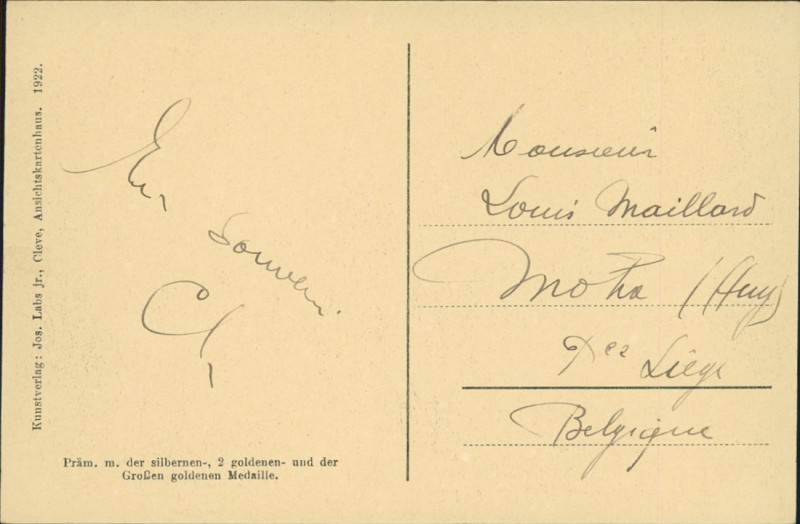 Kunstverlag: Jos. Labs jr., Cleve, Ansichtskartenhaus. 1922.
En
Souvenir
Präm. m. der silbernen-, 2 goldenen- und der
Großen goldenen Medaille.
Monsieur
Louis Maillard
Moha (Huy)
Liège
Belgique